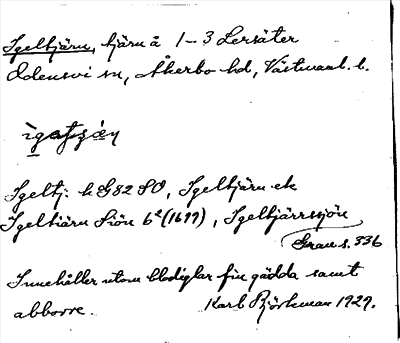 Igeltjärn, tjärn å 1–3 Lersäter
Odensvi sn, Åkerbo hd, Västmanl. l.
Igeltj: k G82 SO, Igeltjärn ek
Igeltiärn Siön 6² (1699), Igeltjärrssjön
Grau s. 336
Innehåller utom blodiglar fin gädda samt
abborre. Karl Björkman 1929.